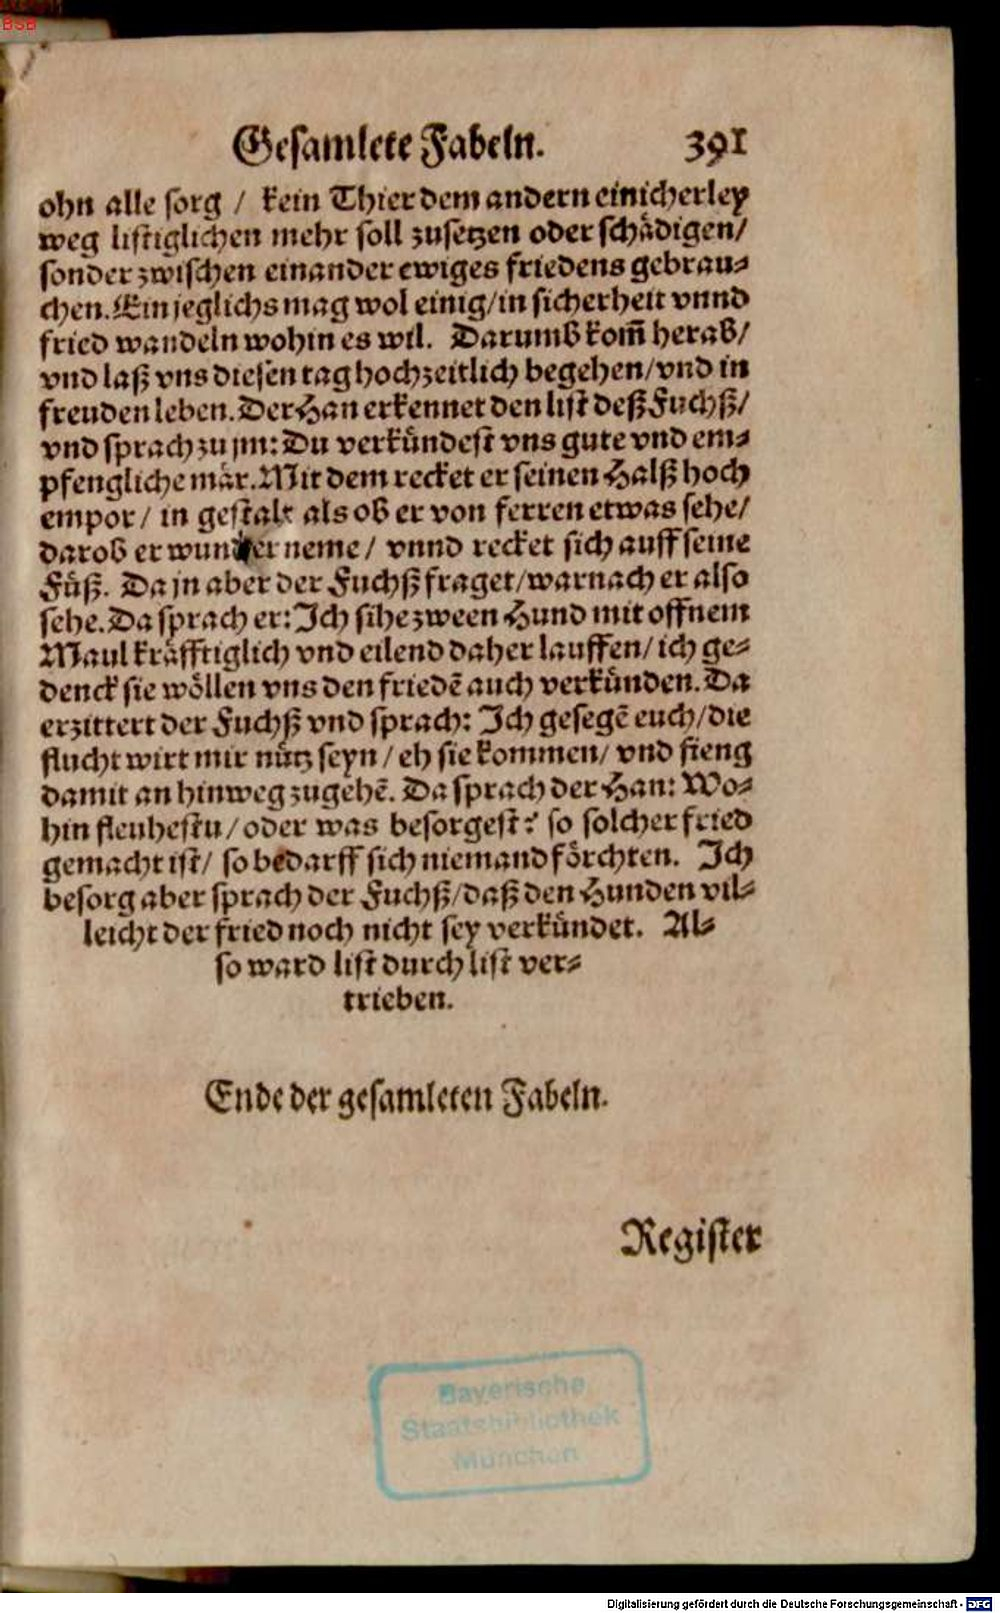 BSB
Gesamlete Fabeln. 391
ohn alle sorg / kein Thier dem andern einicherley
weg listiglichen mehr soll zusetzen oder schädigen/
sonder zwischen einander ewiges friedens gebrau-
chen. Ein jeglichs mag wol einig/in sicherheit vnnd
fried wandeln wohin es wil. Darumb kom̃ herab/
vnd laß vns diesen tag hochzeitlich begehen/vnd in
freuden leben. Der Han erkennet den list deß Fuchß/
vnd sprach zu jm: Du verkündest vns gute vnd em-
pfengliche mär. Mit dem recket er seinen Halß hoch
empor/ in gestalt als ob er von ferren etwas sehe/
darob er wunder neme/ vnnd recket sich auff seine
Füß. Da jn aber der Fuchß fraget/warnach er also
sehe. Da sprach er: Ich sihe zween Hund mit offnem
Maul kräfftiglich vnd eilend daher lauffen/ ich ge-
denck sie wöllen vns den friedẽ auch verkünden. Da
erzittert der Fuchß vnd sprach: Ich gesegẽ euch/die
flucht wirt mir nütz seyn / eh sie kommen/ vnd fieng
damit an hinweg zugehẽ. Da sprach der Han: Wo-
hin fleuhestu/oder was besorgest? so solcher fried
gemacht ist/ so bedarff sich niemand förchten. Ich
besorg aber sprach der Fuchß/daß den Hunden vil-
leicht der fried noch nicht sey verkündet. Al-
so ward list durch list ver-
trieben.
Ende der gesamleten Fabeln.
Register
Bayerische
Staatsbibliothek
München
Digitalisierung gefördert durch die Deutsche Forschungsgemeinschaft - DFG